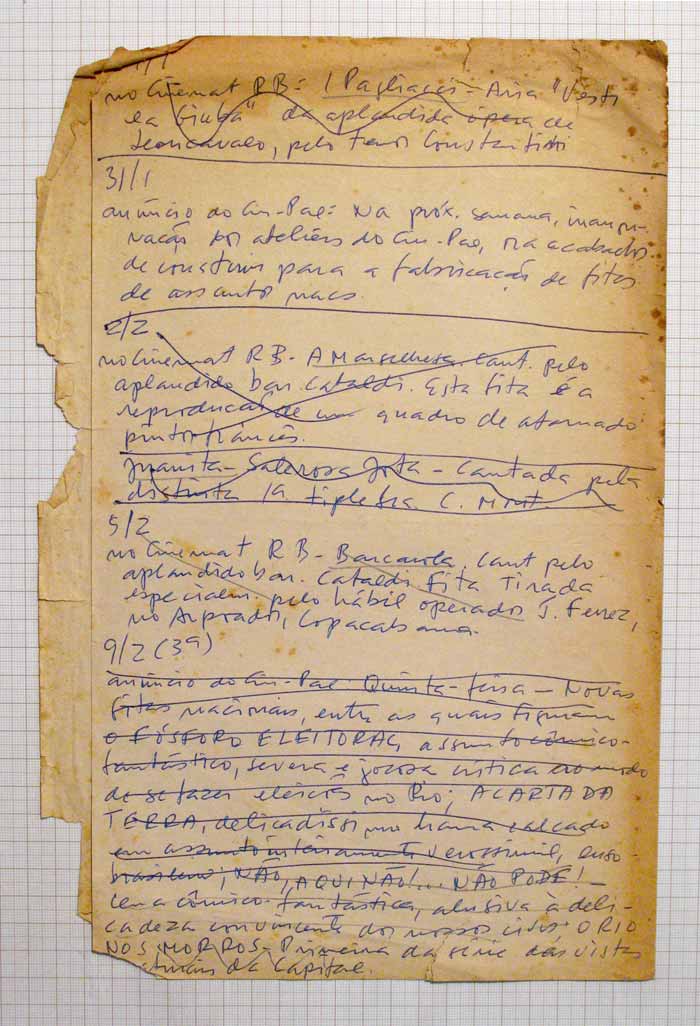 1/1
no Cinemat RB = I Pagliacci - Aria "Vesti
la Giuba" da aplaudida ópera de
Leoncavalo, pelo tenor Constantino
31/1
anúncio do Cin-Pal = Na próx. semana, inaugu-
ração dos ateliers do Cin-Pal, ora acabados
de construir para a fabricação de fitas
de assuntos nacs.
2/2
no Cinemat RB - A Marselhesa. Cant. pelo
aplaudido bar. Cataldi. Esta fita é a
reprodução de um quadro de afamado
pintor francês.
Juanita - Salerosa Jota - Cantada pela
distinta 1a tiple Sra C. Mont.
5/2
no Cinemat RB - Barcarola. Cant pelo
aplaudido bar. Cataldi. Fita tirada
especialm. pelo hábil operador J. Ferrez,
no Arpoador, Copacabana.
9/2 (3ª)
anúncio do Cin-Pal Quinta-feira - Novas
fitas nacionais, entre as quais figuram
O FÓSFORO ELEITORAL, assunto cômico-
fantástico, severa e jocosa crítica ao modo
de se fazer eleições no Rio; A CARTA DA
TERRA, delicadíssimo drama calcado
em assunto inteiramente verossímil, enso
brasileiro; NÃO, AQUI NÃO!... NÃO PODE! -
cena cômico-fantástica, alusiva à deli-
cadeza convincente dos nossos civis O RIO
NOS MORROS - Primeira da série das vistas
naturais da Capital.